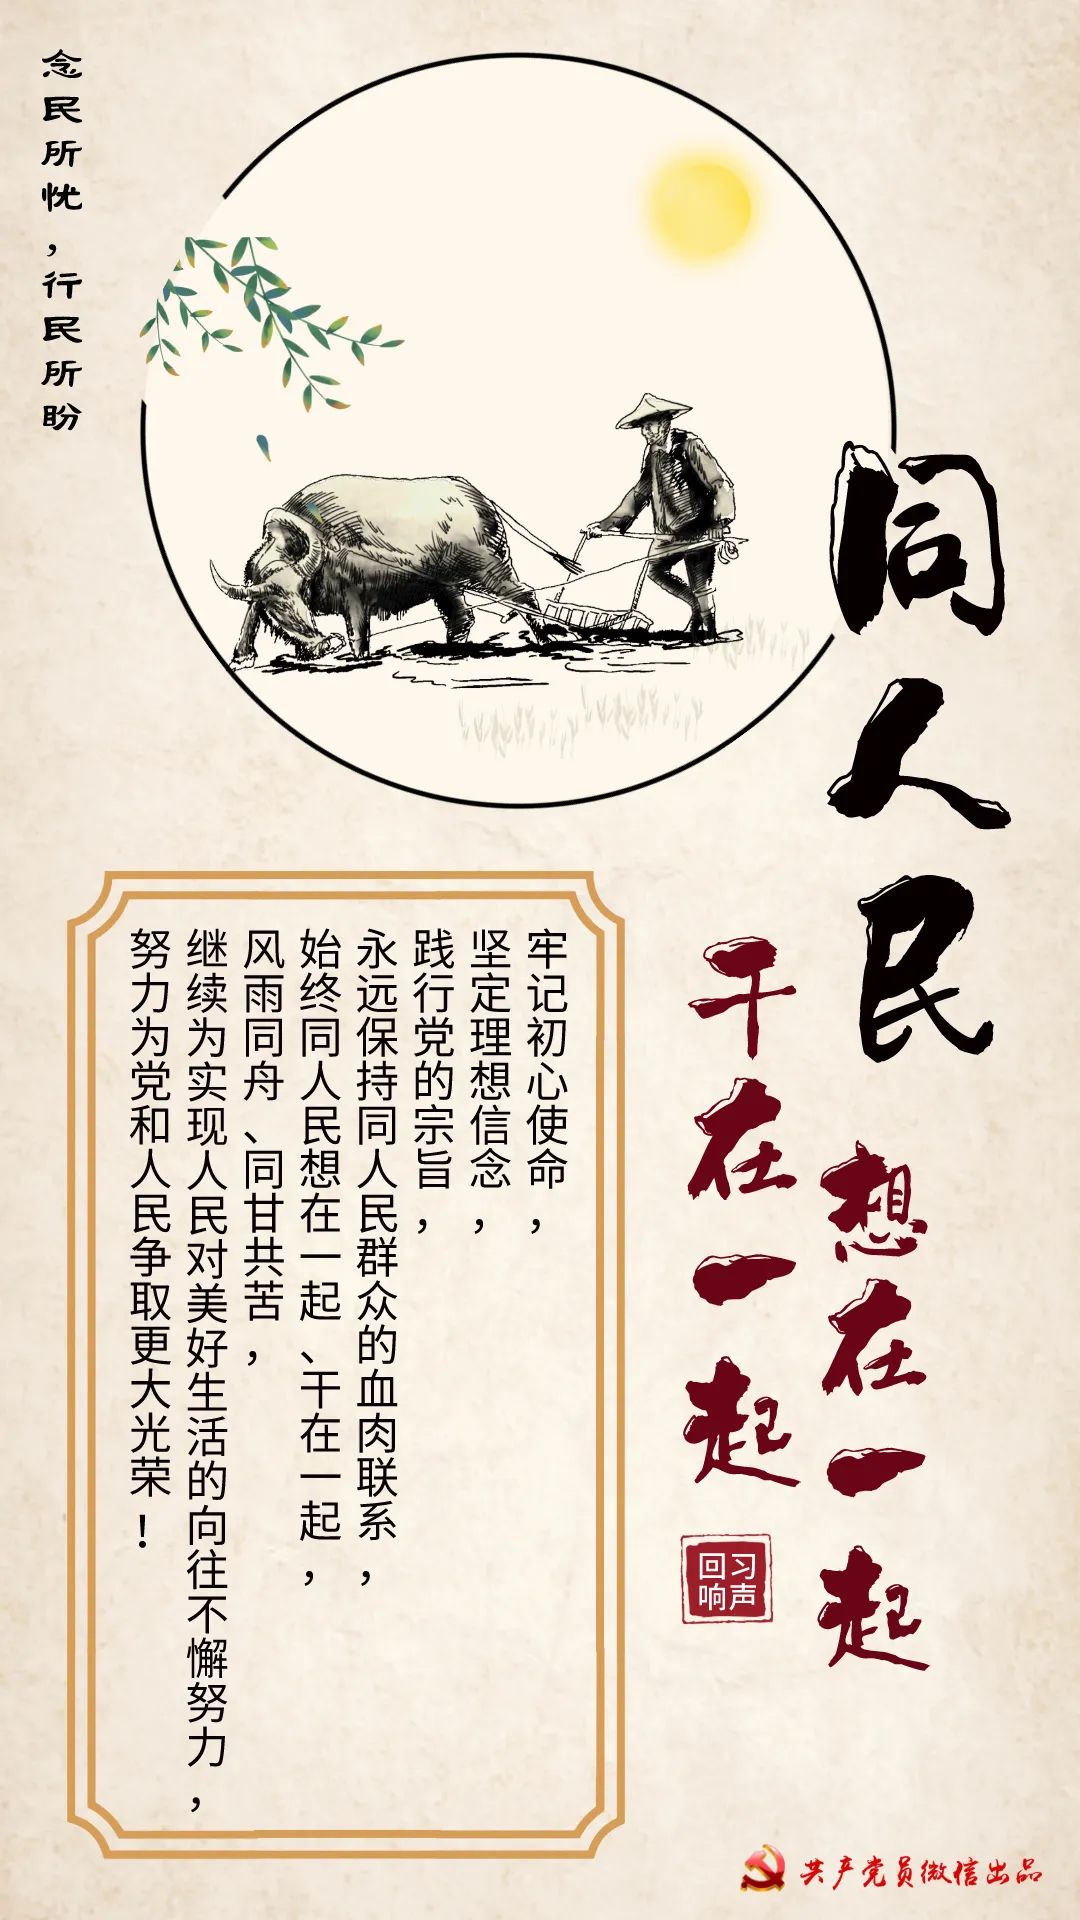 念民所忧，行民所盼
同人民
想在一起
干在一起
习声
回响
牢记初心使命，
坚定理想信念，
践行党的宗旨，
永远保持同人民群众的血肉联系，
始终同人民想在一起、干在一起，
风雨同舟、同甘共苦，
继续为实现人民对美好生活的向往不懈努力，
努力为党和人民争取更大光荣！
共产党员微信出品